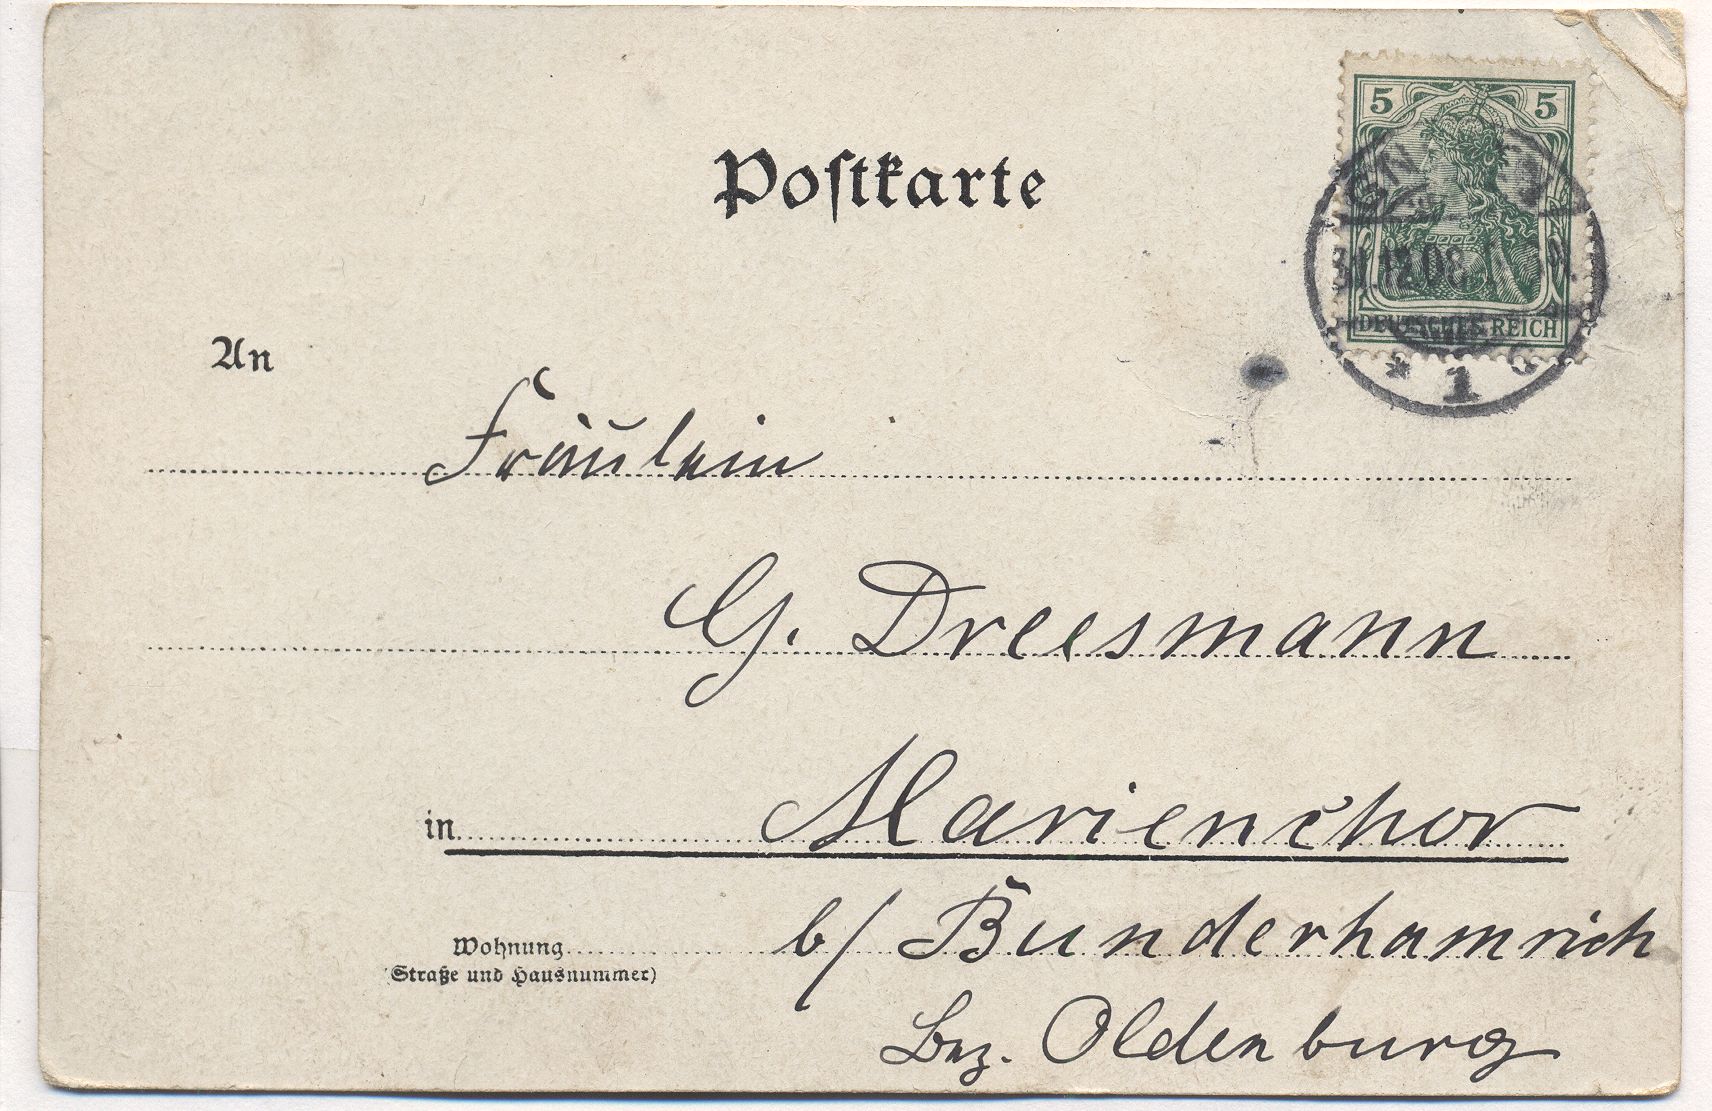 Postkarte
5 5
DEUTSCHES REICH
12.08
* 1
An
Fräulein
G. Dreesmann
in Marienchor
b/ Bunderhamrich
Wohnung
(Straße und Hausnummer)
Bez. Oldenburg